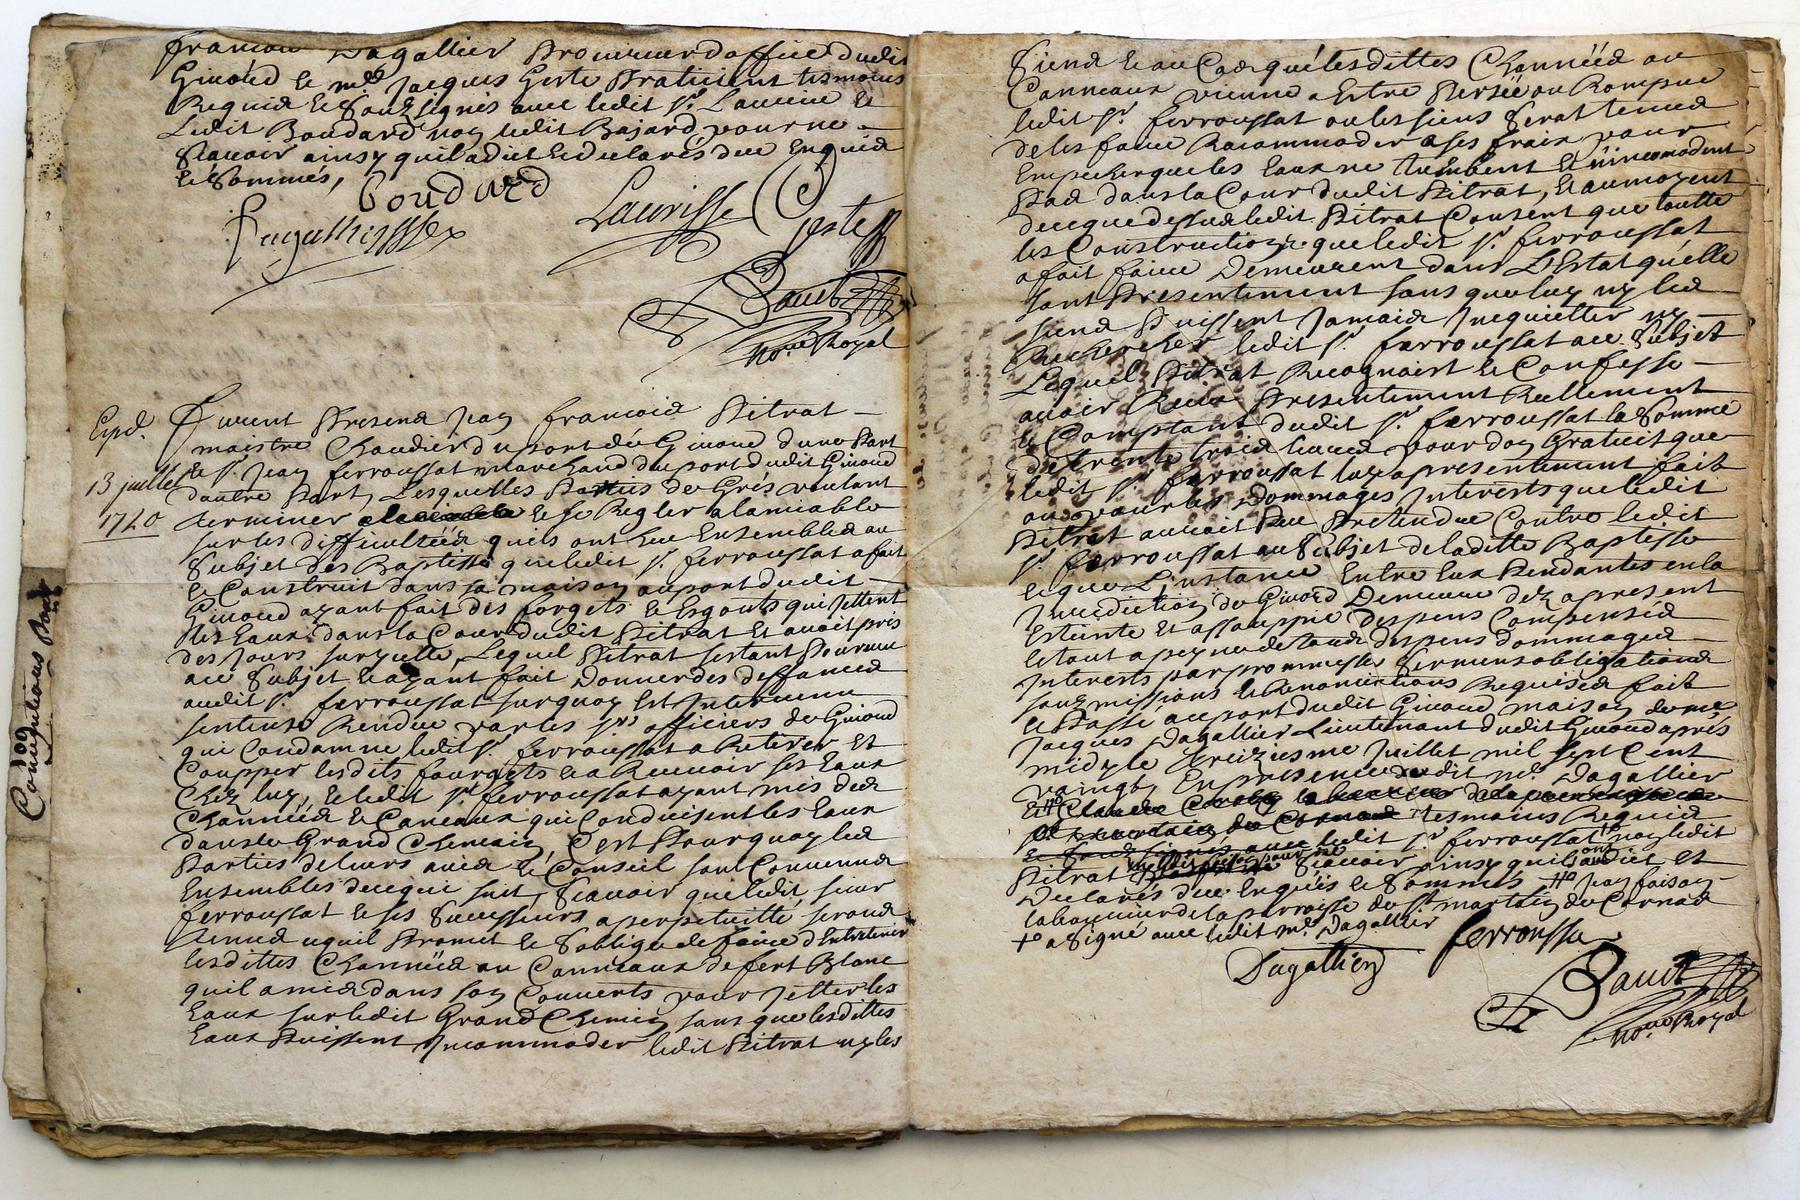 francois Dagallier Procureur d'office dudit
Givord le m.e Jacques Geste Praticient tesmoins
Requis & Souzsignés avec ledit s.r Laurisse &
Ledit Boudard non ledit Bajard pour ne
scavoir ainsy quil a dict & declarés deue Enquis
& sommés,
Boudard
Laurisse
Geste
Baud
no.re Royal
Expd.
13 juillet
1720
furent Presens Jean francois Pitrat
maistre Chaudier du port de Givord d'une Part
& s.r Jean ferroussat marchand du port dudit Givord
d'autre Part, Lesquelles Parties de Grés voulant
terminer & se Regler a lamiable
sur les difficultés quils ont Eue Ensembles au
subjet des Baptisse que ledit s.r ferroussat a fait
& Construit dans sa maison au port dudit
Givord ayant fait des forgets & Esgouts qui jettent
ses Eaux dans la Cour dudit Pitrat & avoit pris
des jours sur ycelle, Lequel Pitrat s'estant Pourveu
au subjet & ayant fait Donner des deffances
audit s.r ferroussat surquoy est Intervenu
sentence Rendue par les s.rs officiers de Givord
qui Condamne ledit s.r ferroussat a Retirer Et
Coupper lesdits fourgets & a Recevoir ses Eaux
Chez luy, & ledit s.r ferroussat ayant mis des
Channées & Caneaux qui Conduisent les Eaux
dans le Grand Chemain, C'est Pourquoy les
Parties de leurs avis & Conseil sont Convenus
Ensembles de ce qui suit, scavoir que ledit sieur
ferroussat & ses successeurs a perpetuitté seront
tenus & quil Promet & s'oblige de faire d'Entretenir
lesdittes Channées ou Canneaux de fert Blanc
quil a mis dans son Couverts pour jetter les
Eaux sur ledit Grand Chemin sans que lesdittes
Eaux Puissent Incommoder ledit Pitrat ny les
109
siens & au Cas que lesdittes Channées ou
Canneaux vienne a Estre Persée ou Rompue
ledit s.r ferroussat ou les siens serat tenus
de les faire Racommoder a ses frais pour
Empecher que les Eaux ne tumbent & n'incomodent
Pas dans la Cour dudit Pitrat, & au moyent
de ce que dessus ledit Pitrat Consent que toutte
les Constructions que ledit s.r ferroussat
a fait faire Demeurent dans L'Estat quelle
sont Presentement sans que luy ny les
siens Puissent Jamais Inquietter ny
Rechercher ledit s.r ferroussat au subjet
Lequel Pitrat Recognoist & Confesse
avoir Receu Presentement Reellement
& Comptant dudit s.r ferroussat la somme
de trente trois livres pour don Gratuit que
ledit s.r ferroussat luy a presentement fait
ou pour les Dommages Interests que ledit
Pitrat auroit Peu Pretendre Contre ledit
s.r ferroussat au subjet de laditte Baptisse
& que L'instance Entre Eux Pendantes en la
Jurisdiction de Givord Demeure dez a present
Esteinte Et assouppie Despens Compensés
le tout a peyne de tous despens dommages
Interests par prommesses sermens obligations
soumissions & Renonciations Requises fait
& Passé au port dudit Givord maison de me
Jacques Dagallier Lieutenant dudit Givord apres
midy le treiziesme Juillet mil sept Cent
vaingt, En presence dudit m.e Dagallier
tesmoins Requis
ledit s.r ferroussat non ledit
Pitrat scavoir ainsy quil ont dict Et
Declarés deue Enquis & sommés
laboureur de la parroisse de St martin de Cornas
a signé avec ledit m.e Dagallier
Dagallier
ferroussa
Baud
no.re Royal